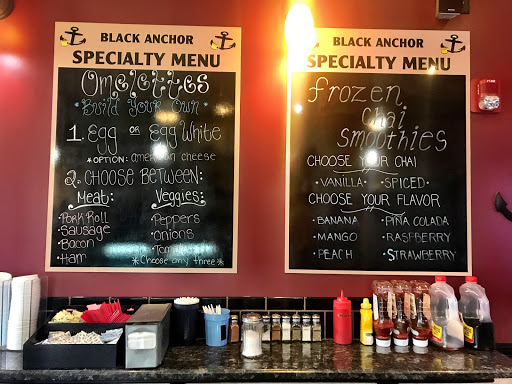 BLACK ANCHOR
SPECIALTY MENU
Omelettes
·Build Your Own·
1. Egg OR Egg White
*OPTION: american cheese
2. CHOOSE BETWEEN:
Meat:
·Pork Roll
·Sausage
·Bacon
·Ham
Veggies:
·Peppers
·Onions
·Tomatoes
*Choose any three*
BLACK ANCHOR
SPECIALTY MENU
frozen
Chai
Smoothies
CHOOSE YOUR CHAI
·VANILLA ·SPICED·
CHOOSE YOUR FLAVOR
·BANANA
·MANGO
·PEACH
·PIÑA COLADA
·RASPBERRY
·STRAWBERRY